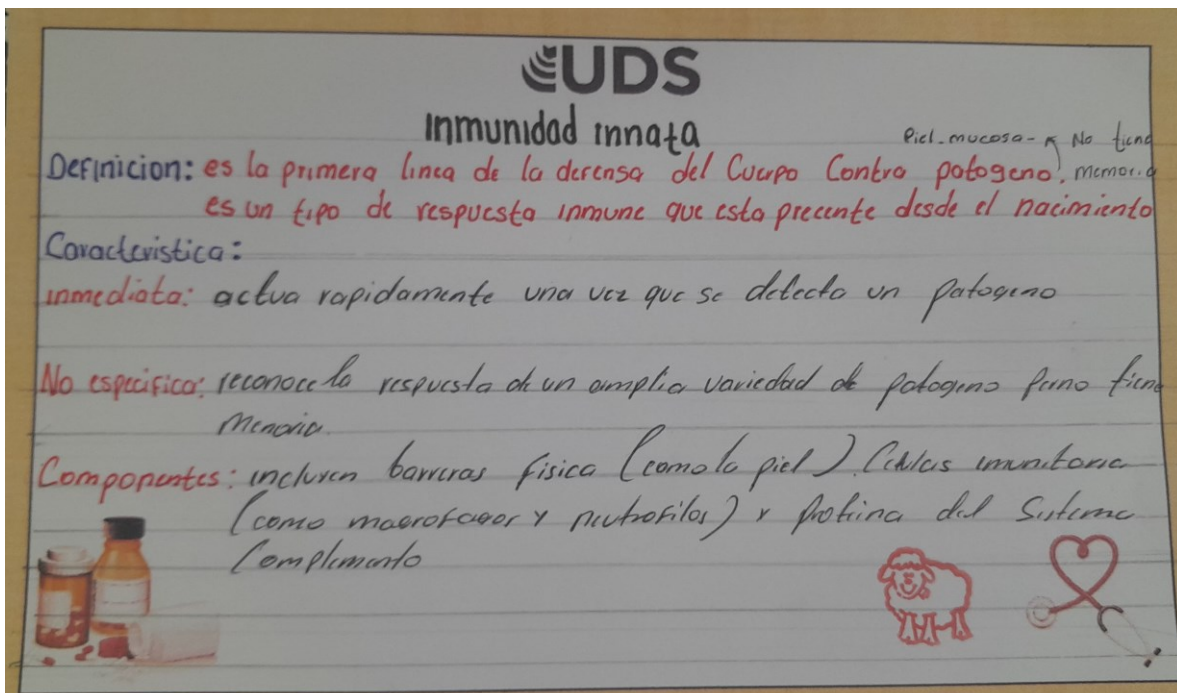 UDS
Inmunidad innata
Piel-mucosa- No tiene
memoria
Definicion: es la primera linea de la defensa del Cuerpo Contra patogeno.
es un tipo de respuesta inmune que esta precente desde el nacimiento
Caracteristica:
inmediata: actua rapidamente una vez que se detecta un patogeno
No especifica: reconoce la respuesta de un amplia variedad de patogeno tiene
memoria.
Componentes: incluyen barreras fisica (como la piel). Celulas inmunitaria
(como macrofagos y neutrofilos) y proteina del Sistema
Complemento